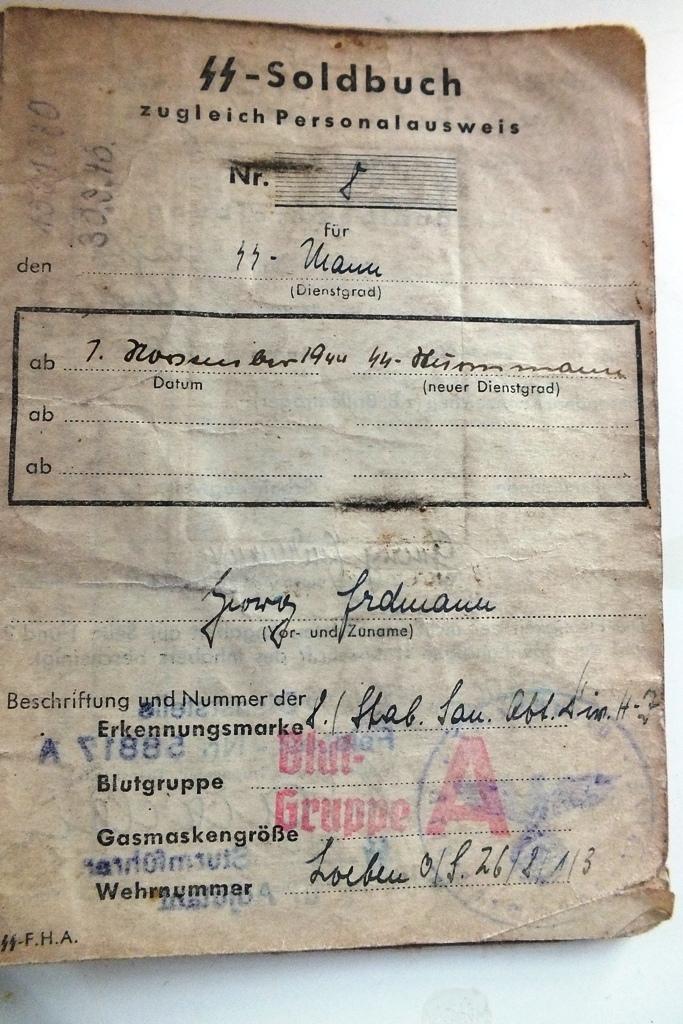 ᛋᛋ-Soldbuch
zugleich Personalausweis
Nr. 8
für
den ᛋᛋ- Mann
(Dienstgrad)
ab 1. November 1944 ᛋᛋ-Sturmmann
Datum (neuer Dienstgrad)
ab
ab
Georg Erdmann
(Vor- und Zuname)
Beschriftung und Nummer der
Erkennungsmarke 8./ Stab. San. Abt. Div.
Blut-
Blutgruppe
Gruppe A
Gasmaskengröße
Wehrnummer Loeben O/S. 26/2/1/3
ᛋᛋ-F.H.A.